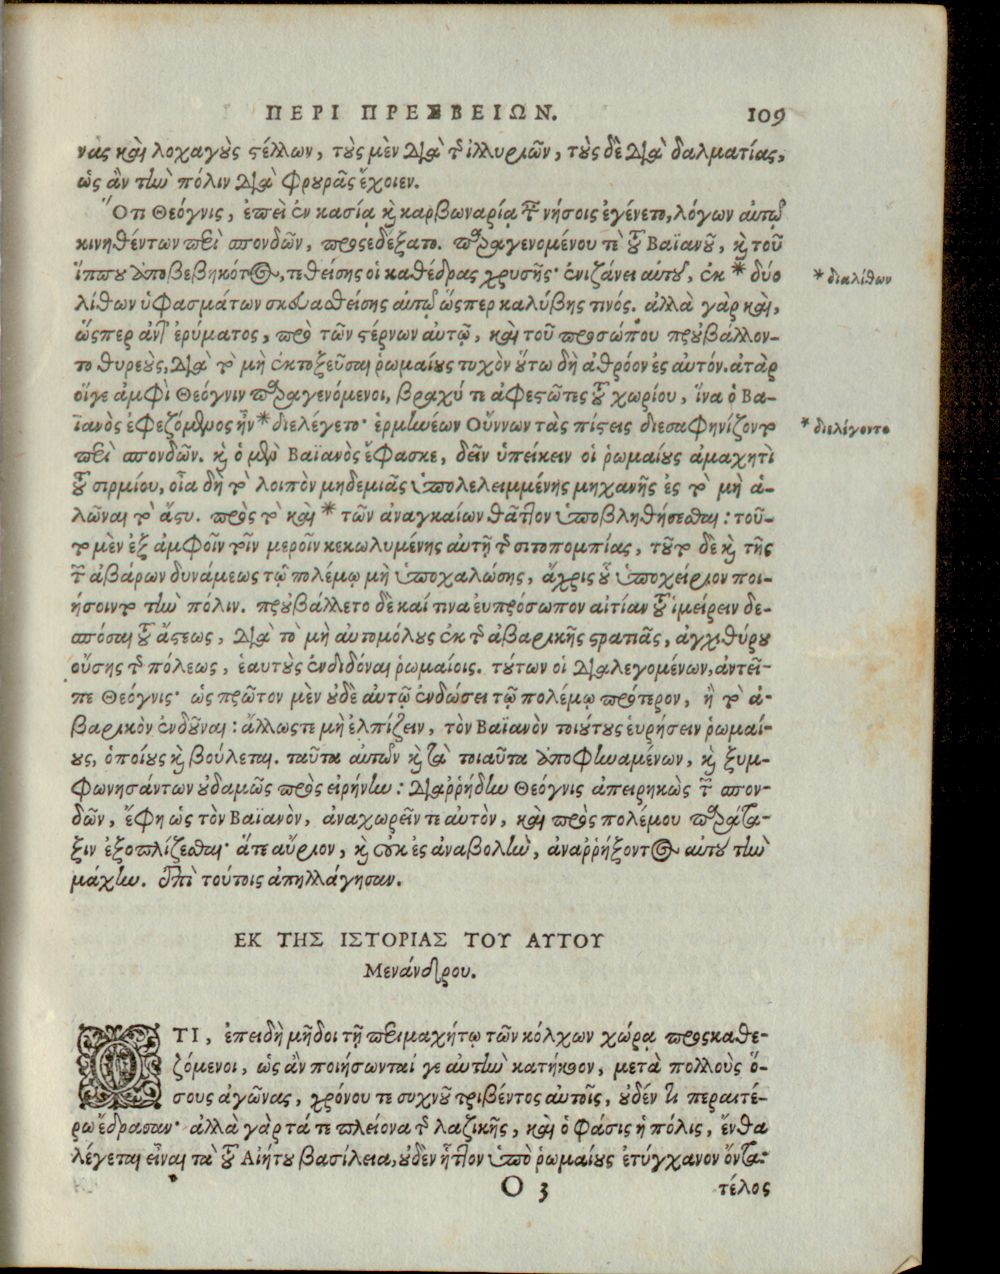 ΠΕΡΙ ΠΡΕΣΒΕΙΩΝ. 109
νὰς καὶ λοχαγοὺς στέλλων, τοὺς μὲν διὰ τῶν ἰλλυριῶν, τοὺς δὲ διὰ δαλματίας,
ὡς ἂν τὴν πόλιν διὰ φρουρᾶς ἔχοιεν.
Ὅτι Θεόγνις, ἐπεὶ ἐν κασίᾳ καὶ καρβωναρίᾳ τῶν νήσοις ἐγένετο, λόγων αὐτῷ
κινηθέντων περὶ σπονδῶν, προσεδέξατο. παραγενομένου τὲ τοῦ Βαϊανοῦ, καὶ τοῦ
ἵππου ἀποβεβηκότος, τεθείσης οἱ καθέδρας χρυσῆς· ἐνιζάνει αὐτοῦ, ἐκ * δύο
* διαλίθων
λίθων ὑφασμάτων σκευασθείσης αὐτῷ ὥσπερ καλύβης τινός. ἀλλὰ γὰρ καὶ,
ὥσπερ ἀντ' ἐρύματος, πρὸ τῶν στέρνων αὐτῷ, καὶ τοῦ προσώπου προὐβάλλον-
το θυρεοὺς, διὰ τὸ μὴ ἐκτοξεῦσαι ῥωμαίους τυχὸν οὕτω δὴ ἀθρόον ἐς αὐτόν. ἀτὰρ
οἵγε ἀμφὶ Θεόγνιν παραγενόμενοι, βραχύ τε ἀφεστῶτες τοῦ χωρίου, ἵνα ὁ Βα-
ϊανὸς ἐφεζόμενος ἦν * διελέγετο· ἑρμηνέων Οὔννων τὰς πίστεις διεσαφηνίζοντο
* διελέγοντο
περὶ σπονδῶν. καὶ ὁ μὲν Βαϊανὸς ἔφασκε, δεῖν ὑπείκειν οἱ ῥωμαίους ἀμαχητὶ
τοῦ σιρμίου, οἷα δὴ τὸ λοιπὸν μηδεμιᾶς ὑπολελειμμένης μηχανῆς ἐς τὸ μὴ ἁ-
λῶναι τὸ ἄστυ. πρὸς τὸ καὶ * τῶν ἀναγκαίων θᾶττον ὑποβληθήσεσθαι: τοῦ-
το μὲν ἐξ ἀμφοῖν τοῖν μεροῖν κεκωλυμένης αὐτῇ τῆς σιτοπομπίας, τοῦτο δὲ καὶ τῆς
τῶν ἀβάρων δυνάμεως τῷ πολέμῳ μὴ ὑποχαλώσης, ἄχρις οὗ ὑποχείριον ποι-
ήσοιντο τὴν πόλιν. προὐβάλλετο δὲ καί τινα εὐπρόσωπον αἰτίαν τοῦ ἱμείρειν δε-
σπόσαι τοῦ ἄστεως, διὰ τὸ μὴ αὐτομόλους ἐκ τῆς ἀβαρικῆς στρατιᾶς, ἀγχιθύρου
οὔσης τῆς πόλεως, ἑαυτοὺς ἐνδιδόναι ῥωμαίοις. τούτων οἱ διαλεγομένων, ἀντεῖ-
πε Θεόγνις· ὡς πρῶτον μὲν οὐδὲ αὐτῷ ἐνδώσει τῷ πολέμῳ πρότερον, ἢ τὸ ἀ-
βαρικὸν ἐνδοῦναι: ἄλλωστε μὴ ἐλπίζειν, τὸν Βαϊανὸν τοιούτους εὑρήσειν ῥωμαί-
ους, ὁποίους καὶ βούλεται. ταῦτα αὐτῶν καὶ τὰ τοιαῦτα ἀποφηναμένων, καὶ ξυμ-
φωνησάντων οὐδαμῶς πρὸς εἰρήνην: διαῤῥήδην Θεόγνις ἀπειρηκὼς τῶν σπον-
δῶν, ἔφη ὡς τὸν Βαϊανὸν, ἀναχωρεῖν τε αὐτὸν, καὶ πρὸς πολέμου παράτα-
ξιν ἐξοπλίζεσθαι· ἅτε αὔριον, καὶ οὐκ ἐς ἀναβολὴν, ἀναῤῥήξοντος αὐτοῦ τὴν
μάχην. ἐπὶ τούτοις ἀπηλλάγησαν.
ΕΚ ΤΗΣ ΙΣΤΟΡΙΑΣ ΤΟΥ ΑΥΤΟΥ
Μενάνδρου.
ΟΤΙ, ἐπειδὴ μῆδοι τῇ περιμαχήτῳ τῶν κόλχων χώρᾳ προσκαθε-
ζόμενοι, ὡς ἂν ποιήσωνταί γε αὐτὴν κατήκοον, μετὰ πολλοὺς ὅ-
σους ἀγῶνας, χρόνου τε συχνοῦ τριβέντος αὐτοῖς, οὐδέν τι περαιτέ-
ρω ἔδρασαν· ἀλλὰ γὰρ τά τε πλείονα τῆς λαζικῆς, καὶ ὁ Φάσις ἡ πόλις, ἔνθα
λέγεται εἶναι τὰ τοῦ Αἰήτου βασίλεια, οὐδὲν ἧττον ὑπὸ ῥωμαίους ἐτύγχανον ὄντα·
O 3 τέλος